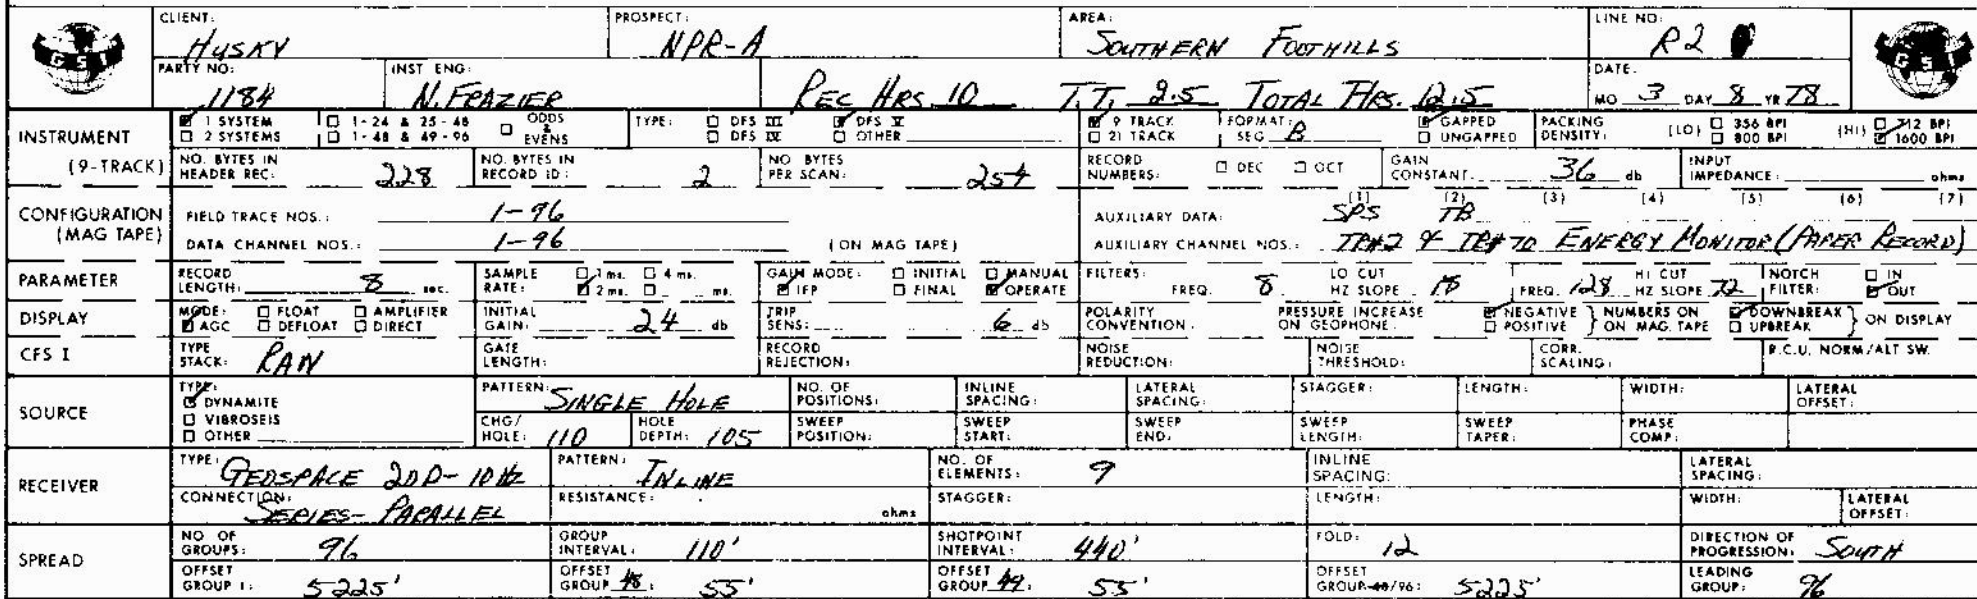 CLIENT: HUSKY PROSPECT: NPR-A AREA: SOUTHERN FOOTHILLS LINE NO: R2
GSI GSI
PARTY NO: 1184 INST ENG: N. FRAZIER REC HRS 10 T.T. 2.5 TOTAL HRS. 12.5 DATE: MO 3 DAY 8 YR 78
INSTRUMENT (9-TRACK) 1 SYSTEM 1-24 & 25-48 ODDS & EVENS TYPE: DFS III DFS V 9 TRACK FORMAT: SEG B GAPPED PACKING DENSITY: (LO) 356 BPI (HI) 712 BPI
2 SYSTEMS 1-48 & 49-96 DFS IV OTHER 21 TRACK UNGAPPED 800 BPI 1600 BPI
NO. BYTES IN HEADER REC: 228 NO. BYTES IN RECORD ID: 2 NO BYTES PER SCAN: 254 RECORD NUMBERS: DEC OCT GAIN CONSTANT. 36 db INPUT IMPEDANCE: ohms
CONFIGURATION (MAG TAPE) FIELD TRACE NOS.: 1-96 AUXILIARY DATA: (1) SPS (2) TB (3) (4) (5) (6) (7)
DATA CHANNEL NOS.: 1-96 (ON MAG TAPE) AUXILIARY CHANNEL NOS.: TR#2 & TR#70 ENERGY MONITOR (PAPER RECORD)
PARAMETER RECORD LENGTH: 8 sec. SAMPLE RATE: 1 ms. 4 ms. 2 ms. ms. GAIN MODE: INITIAL MANUAL IFP FINAL OPERATE FILTERS: FREQ. 8 LO CUT HZ SLOPE 18 FREQ. 128 HI CUT HZ SLOPE 72 NOTCH FILTER: IN OUT
DISPLAY MODE: FLOAT AMPLIFIER AGC DEFLOAT DIRECT INITIAL GAIN: 24 db TRIP SENS: 6 db POLARITY CONVENTION: PRESSURE INCREASE ON GEOPHONE: NEGATIVE POSITIVE NUMBERS ON ON MAG. TAPE DOWNBREAK UPBREAK ON DISPLAY
CFS I TYPE STACK: RAW GATE LENGTH: RECORD REJECTION: NOISE REDUCTION: NOISE THRESHOLD: CORR. SCALING: R.C.U. NORM/ALT SW.
SOURCE TYPE: DYNAMITE VIBROSEIS OTHER PATTERN: SINGLE HOLE NO. OF POSITIONS: INLINE SPACING: LATERAL SPACING: STAGGER: LENGTH: WIDTH: LATERAL OFFSET:
CHG/HOLE: 110 HOLE DEPTH: 105 SWEEP POSITION: SWEEP START: SWEEP END: SWEEP LENGTH: SWEEP TAPER: PHASE COMP:
RECEIVER TYPE: GEOSPACE 20D-10HZ PATTERN: INLINE NO. OF ELEMENTS: 9 INLINE SPACING: LATERAL SPACING:
CONNECTION: SERIES-PARALLEL RESISTANCE: ohms STAGGER: LENGTH: WIDTH: LATERAL OFFSET:
SPREAD NO OF GROUPS: 96 GROUP INTERVAL: 110' SHOTPOINT INTERVAL: 440' FOLD: 12 DIRECTION OF PROGRESSION: SOUTH
OFFSET GROUP 1: 5225' OFFSET GROUP 48: 55' OFFSET GROUP 49: 55' OFFSET GROUP 48/96: 5225' LEADING GROUP: 96